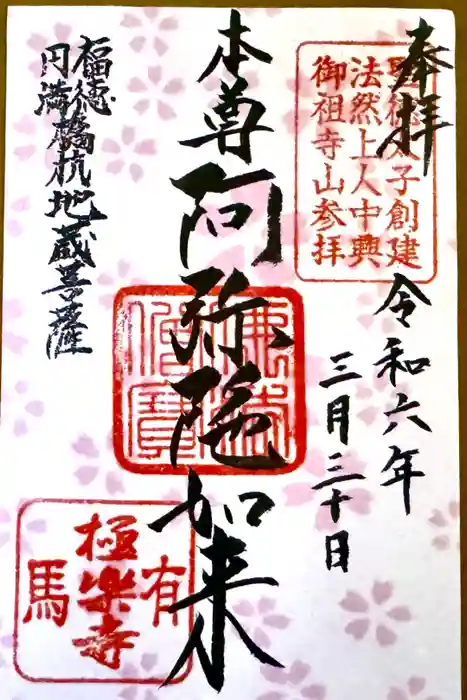 奉拝
聖徳太子創建
法然上人中興
御祖寺山参拝
令和六年
三月三十日
本尊阿弥陀如来
佛法僧寶
福徳
円満橋杭地蔵菩薩
有馬
極楽寺